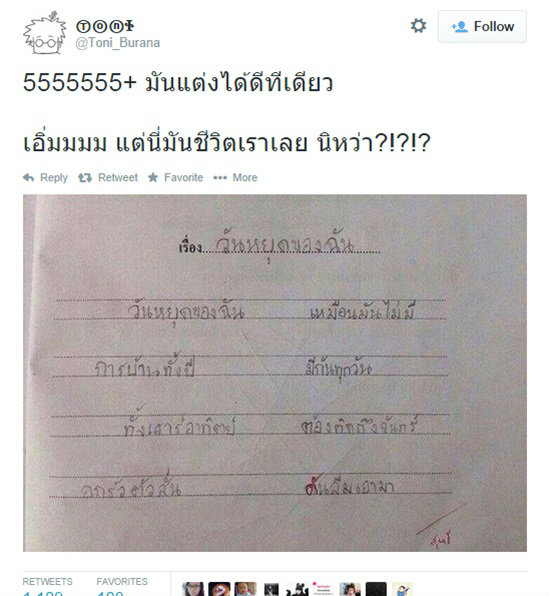 Ⓣⓞⓝⓘ
@Toni_Burana
Follow
5555555+ มันแต่งได้ดีทีเดียว
เอิ่มมมม แต่นี่มันชีวิตเราเลย นิหว่า?!?!?
Reply Retweet Favorite More
เรื่อง วันหยุดของฉัน
วันหยุดของฉัน เหมือนมันไม่มี
การบ้านทั้งปี มีกันทุกวัน
ทั้งเสาร์อาทิตย์ ต้องคิดถึงจันทร์
อกรัวตัวสั่น ดันลืมเอามา
RETWEETS FAVORITES